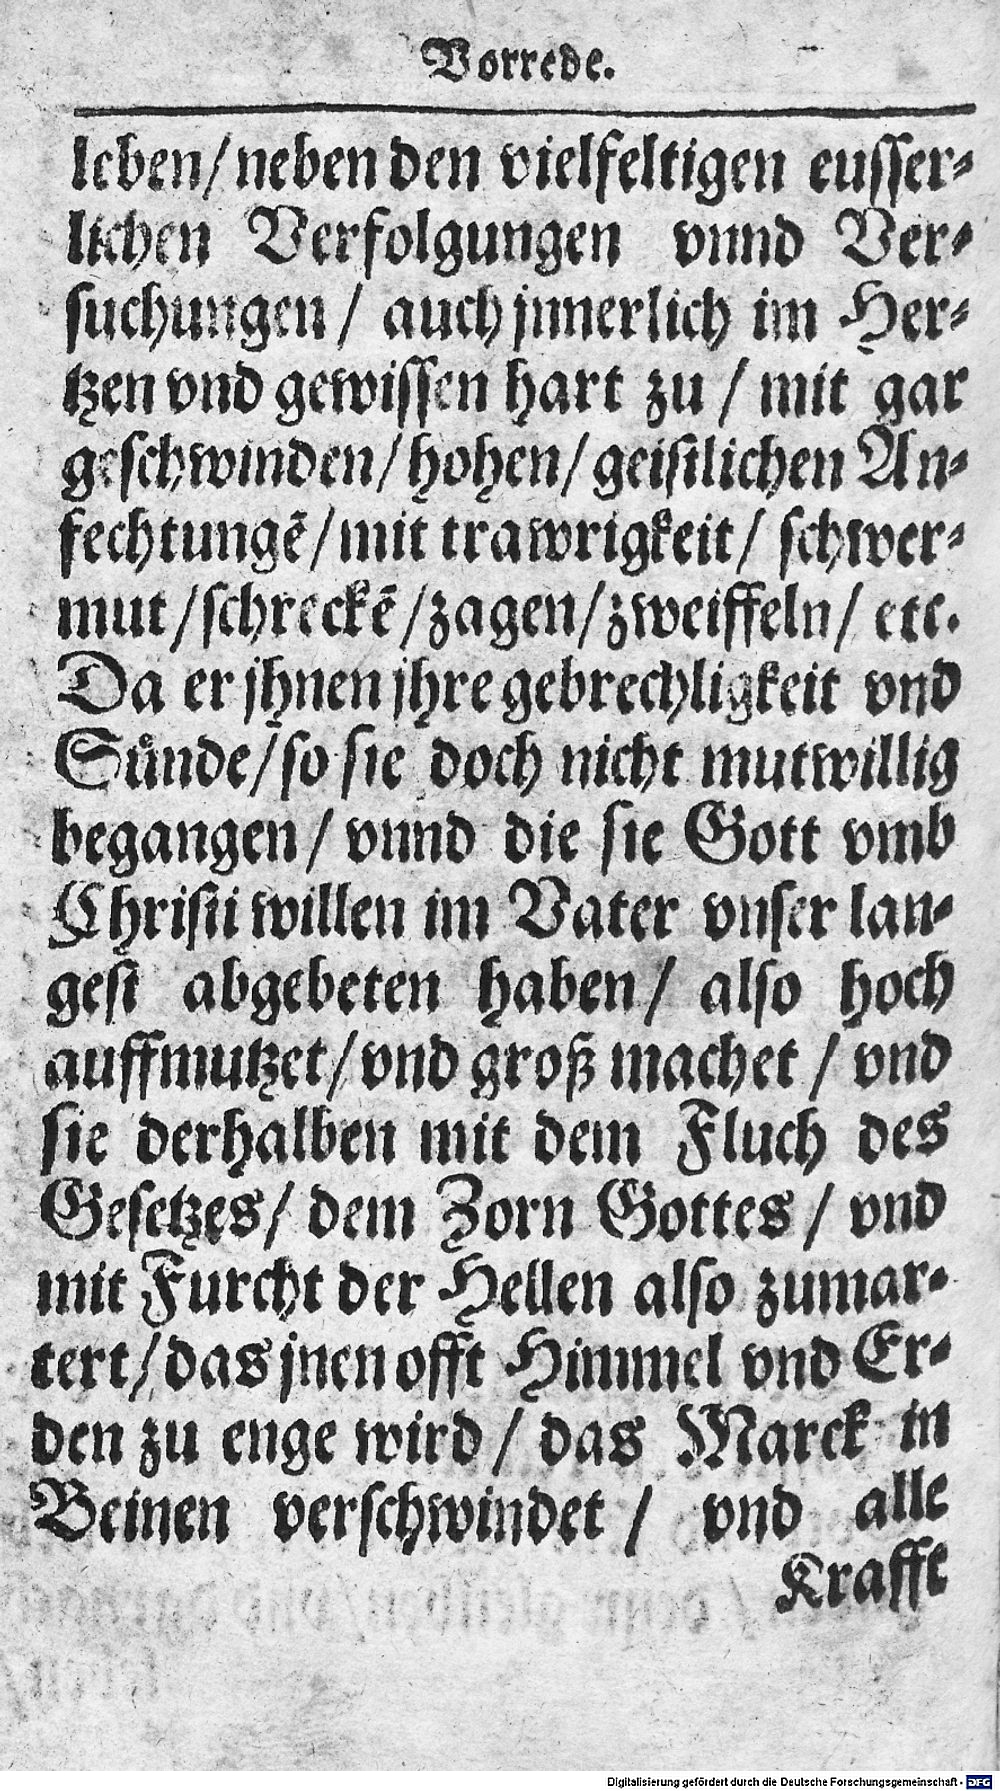 Vorrede.
leben/ neben den vielfeltigen eusser-
lichen Verfolgungen vnnd Ver-
suchungen/ auch jnnerlich im Her-
tzen vnd gewissen hart zu / mit gar
geschwinden/ hohen/ geistlichen An-
fechtungẽ/ mit trawrigkeit/ schwer-
mut/ schreckẽ/ zagen/ zweiffeln/ etc.
Da er jhnen jhre gebrechligkeit vnd
Suͤnde/ so sie doch nicht mutwillig
begangen/ vnnd die sie Gott vmb
Christi willen im Vater vnser lan-
gest abgebeten haben/ also hoch
auffmutzet/ vnd groß machet / vnd
sie derhalben mit dem Fluch des
Gesetzes/ dem Zorn Gottes / vnd
mit Furcht der Hellen also zumar-
tert/ das jnen offt Himmel vnd Er-
den zu enge wird/ das Marck in
Beinen verschwindet / vnd alle
Kraffe
Digitalisierung gefördert durch die Deutsche Forschungsgemeinschaft - DFG